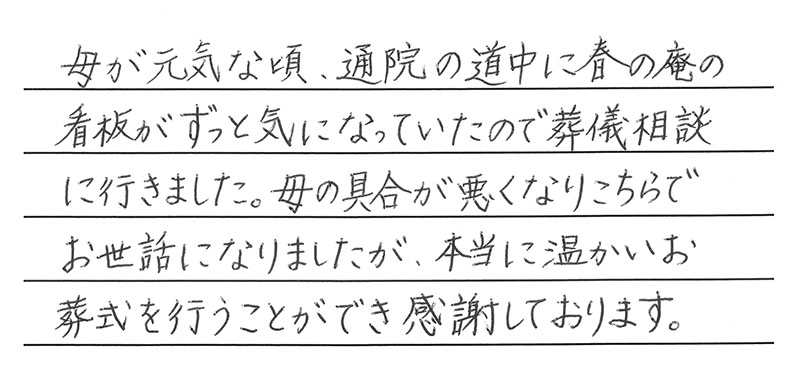 母が元気な頃、通院の道中に春の庵の
看板がずっと気になっていたので葬儀相談
に行きました。母の具合が悪くなりこちらで
お世話になりましたが、本当に温かいお
葬式を行うことができ感謝しております。